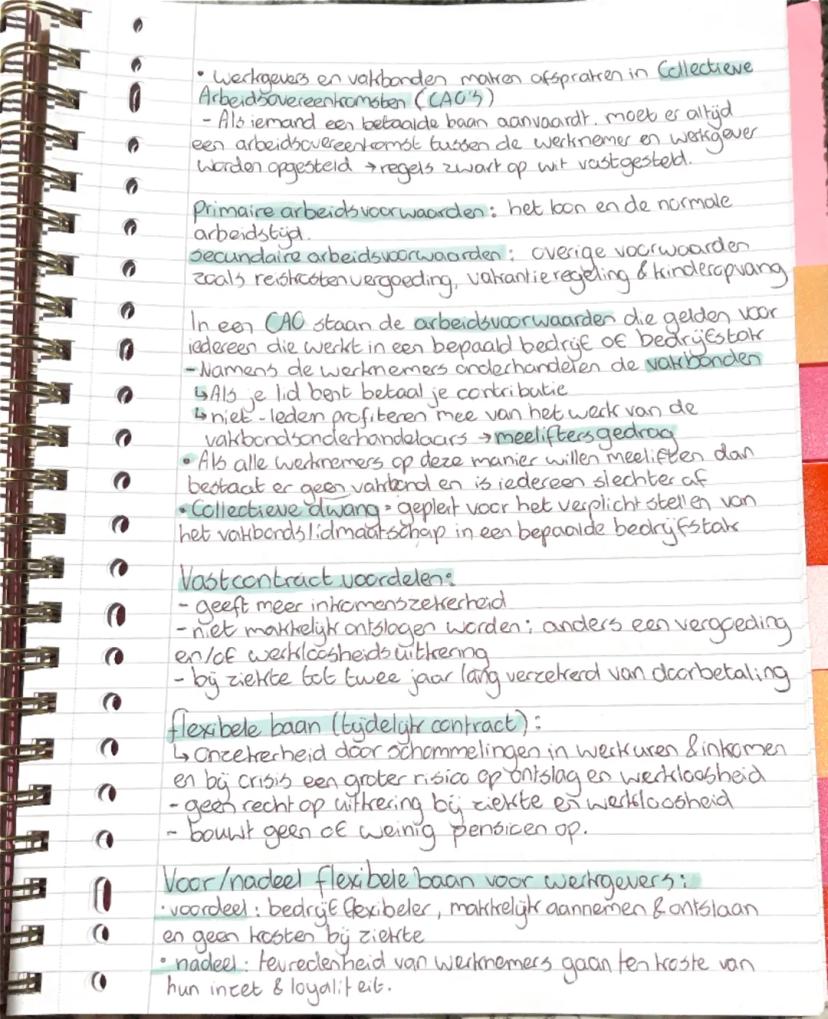 • Werkgevers en vakbonden maken afspraken in Collectieve
Arbeidsovereenkomsten (CAO's)
- Als iemand een betaalde baan aanvaardt, moet er altijd
een arbeidsovereenkomst tussen de werknemer en werkgever
worden opgesteld → regels zwart op wit vastgesteld.
Primaire arbeidsvoorwaarden: het loon en de normale
arbeidstijd.
secundaire arbeidsvoorwaarden: overige voorwaarden
zoals reiskostenvergoeding, vakantieregeling & kinderopvang
In een CAO staan de arbeidsvoorwaarden die gelden voor
iedereen die werkt in een bepaald bedrijf of bedrijfstak
- Namens de werknemers onderhandelen de vakbonden
↳ Als je lid bent betaal je contributie
↳ niet-leden profiteren mee van het werk van de
vakbondsonderhandelaars → meeliftersgedrag
• Als alle werknemers op deze manier willen meeliften dan
bestaat er geen vakbond en is iedereen slechter af
• Collectieve dwang = gepleit voor het verplicht stellen van
het vakbondslidmaatschap in een bepaalde bedrijfstak
Vastcontract voordelen:
- geeft meer inkomenszekerheid
- niet makkelijk ontslagen worden; anders een vergoeding
en/of werkloosheidsuitkering
- bij ziekte tot twee jaar lang verzekerd van doorbetaling
flexibele baan (tijdelijk contract):
↳ Onzekerheid door schommelingen in werkuren & inkomen
en bij crisis een groter risico op ontslag en werkloosheid
- geen recht op uitkering bij ziekte en werkloosheid
- bouwt geen of weinig pensioen op.
Voor/nadeel flexibele baan voor werkgevers:
• voordeel: bedrijf flexibeler, makkelijk aannemen & ontslaan
en geen kosten bij ziekte
• nadeel: tevredenheid van werknemers gaan ten koste van
hun inzet & loyaliteit.